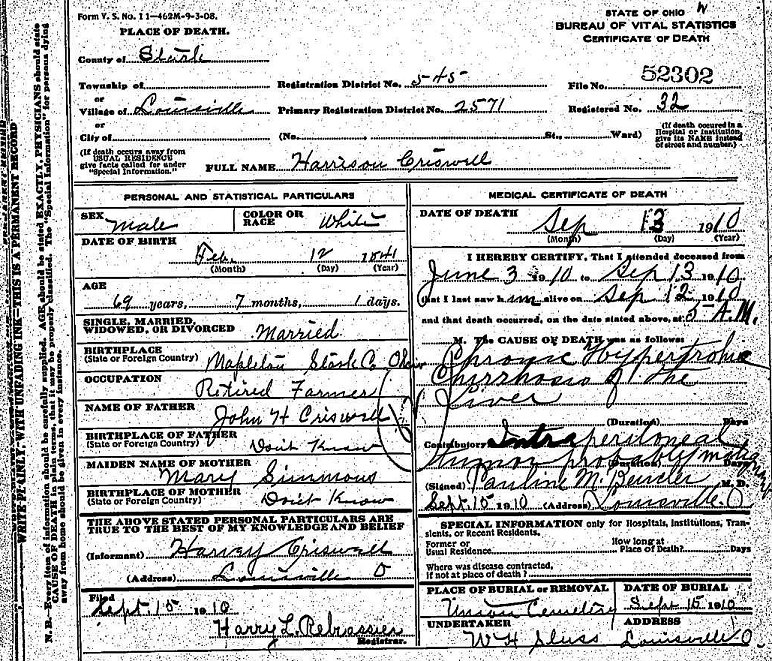 Form V. S. No. 11-462M-9-3-08.
PLACE OF DEATH.
County of Stark
Township of
or
Village of Louisville
or
City of
(If death occurs away from
USUAL RESIDENCE
give facts called for under
"Special Information.")
STATE OF OHIO
BUREAU OF VITAL STATISTICS
CERTIFICATE OF DEATH
Registration District No. 545
File No. 52302
Primary Registration District No. 2571
Registered No. 32
(No. , St., Ward)
(If death occured in a
Hospital or Institution,
give its NAME instead
of street and number.)
FULL NAME Harrison Criswell
PERSONAL AND STATISTICAL PARTICULARS
SEX Male
COLOR OR
RACE White
DATE OF BIRTH
Feb. 12 1841
(Month) (Day) (Year)
AGE
69 years, 7 months, 1 days.
SINGLE, MARRIED,
WIDOWED, OR DIVORCED Married
BIRTHPLACE
(State or Foreign Country) Mapleton Stark Co Ohio
OCCUPATION
Retired Farmer
NAME OF FATHER
John H Criswell
BIRTHPLACE OF FATHER
(State or Foreign Country) Don't Know
MAIDEN NAME OF MOTHER
Mary Simmons
BIRTHPLACE OF MOTHER
(State or Foreign Country) Don't Know
THE ABOVE STATED PERSONAL PARTICULARS ARE
TRUE TO THE BEST OF MY KNOWLEDGE AND BELIEF
(Informant) Harvey Criswell
(Address) Louisville O
Filed
Sept 15 1910
Harry L.
Registrar.
MEDICAL CERTIFICATE OF DEATH
DATE OF DEATH
Sep 13 1910
(Month) (Day) (Year)
I HEREBY CERTIFY, That I attended deceased from
June 3 1910 to Sep 13 1910
that I last saw him alive on Sep 12 1910
and that death occurred, on the date stated above, at 5 A.M.
M. The CAUSE OF DEATH was as follows:
Chronic Hypertrophic
Chirrhosis of the
Liver
(Duration) Days
Contributory Intraperitoneal
tumor probably
(Duration) Days
(Signed) Pauline M. M. D.
Sept. 15 1910 (Address) Louisville, O
SPECIAL INFORMATION only for Hospitals, Institutions, Tran-
sients, or Recent Residents.
Former or
Usual Residence
How long at
Place of Death? Days
Where was disease contracted,
if not at place of death?
PLACE OF BURIAL or REMOVAL
Union Cemetery
DATE OF BURIAL
Sept 15 1910
UNDERTAKER
W H Sluss
ADDRESS
Louisville O.
WRITE PLAINLY, WITH UNFADING INK—THIS IS A PERMANENT RECORD
N. B.—Every item of information should be carefully supplied. AGE should be stated EXACTLY. PHYSICIANS should state
CAUSE OF DEATH in plain terms, that it may be properly classified. The "Special Information" for persons dying
away from home should be given in every instance.